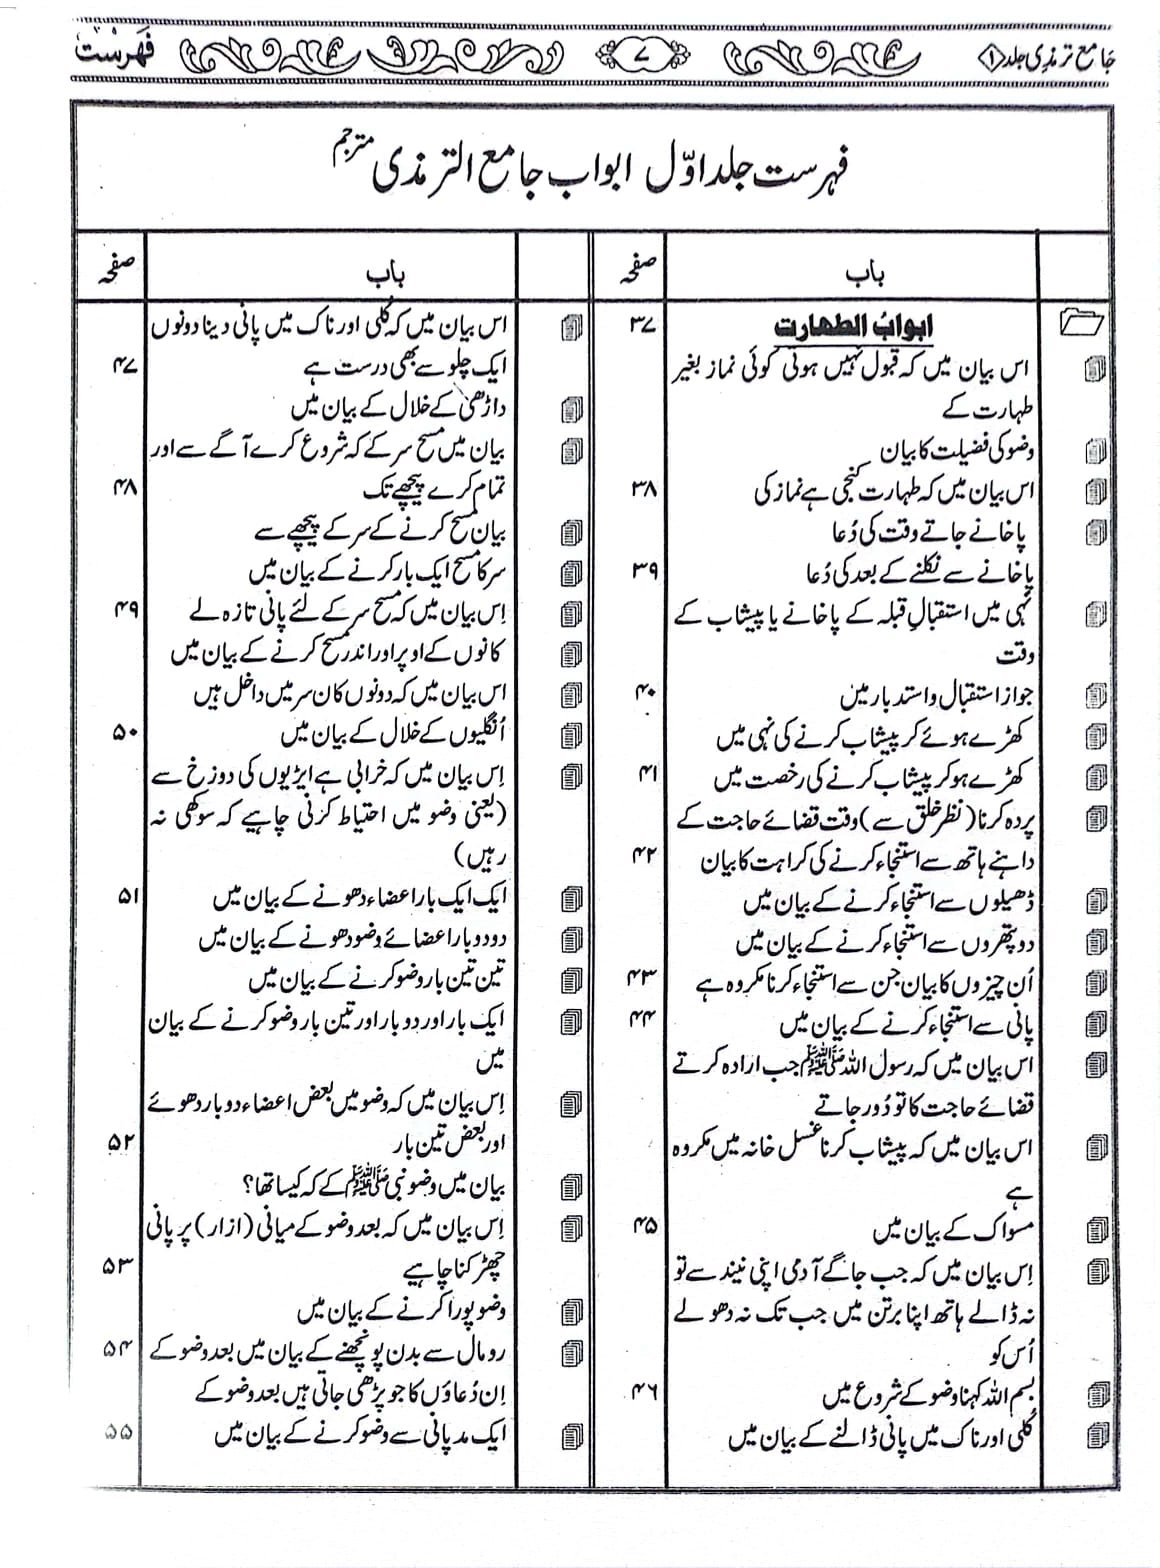 جامع ترمذی جلد ۱
۷
فہرست
فہرست جلد اوّل ابواب جامع الترمذی مترجم
باب
صفحہ
ابوابُ الطهارت
۳۷
اس بیان میں کہ قبول نہیں ہوتی کوئی نماز بغیر
طہارت کے
وضو کی فضیلت کا بیان
اس بیان میں کہ طہارت کنجی ہے نماز کی
۳۸
پاخانے جاتے وقت کی دُعا
پاخانے سے نکلنے کے بعد کی دُعا
۳۹
نہی میں استقبالِ قبلہ کے پاخانے یا پیشاب کے
وقت
جواز استقبال و استدبار میں
۴۰
کھڑے ہوئے کر پیشاب کرنے کی نہی میں
کھڑے ہو کر پیشاب کرنے کی رخصت میں
۴۱
پردہ کرنا (نظر خلق سے) وقت قضائے حاجت کے
داہنے ہاتھ سے استنجاء کرنے کی کراہت کا بیان
۴۲
ڈھیلوں سے استنجاء کرنے کے بیان میں
دو پتھروں سے استنجاء کرنے کے بیان میں
اُن چیزوں کا بیان جن سے استنجاء کرنا مکروہ ہے
۴۳
پانی سے استنجاء کرنے کے بیان میں
۴۴
اس بیان میں کہ رسول اللہ ﷺ جب ارادہ کرتے
قضائے حاجت کا تو دُور جاتے
اس بیان میں کہ پیشاب کرنا غسل خانہ میں مکروہ
ہے
مسواک کے بیان میں
۴۵
اِس بیان میں کہ جب جاگے آدمی اپنی نیند سے تو
نہ ڈالے ہاتھ اپنا برتن میں جب تک نہ دھو لے
اُس کو
بسم اللہ کہنا وضو کے شروع میں
۴۶
کُلی اور ناک میں پانی ڈالنے کے بیان میں
باب
صفحہ
اس بیان میں کہ کُلی اور ناک میں پانی دینا دونوں
ایک چلو سے بھی درست ہے
۴۷
داڑھی کے خلال کے بیان میں
بیان میں مسح سر کے کہ شروع کرے آگے سے اور
تمام کرے پیچھے تک
۴۸
بیان مسح کرنے کے سر کے پیچھے سے
سر کا مسح ایک بار کرنے کے بیان میں
اِس بیان میں کہ مسح سر کے لئے پانی تازہ لے
۴۹
کانوں کے اوپر اور اندر مسح کرنے کے بیان میں
اس بیان میں کہ دونوں کان سر میں داخل ہیں
اُنگلیوں کے خلال کے بیان میں
۵۰
اِس بیان میں کہ خرابی ہے ایڑیوں کی دوزخ سے
(یعنی وضو میں احتیاط کرنی چاہیے کہ سوکھی نہ
رہیں)
ایک ایک بار اعضاء دھونے کے بیان میں
۵۱
دو دو بار اعضائے وضو دھونے کے بیان میں
تین تین بار وضو کرنے کے بیان میں
ایک بار اور دو بار اور تین بار وضو کرنے کے بیان
میں
اِس بیان میں کہ وضو میں بعض اعضاء دو بار دھوئے
اور بعض تین بار
۵۲
بیان میں وضو نبی ﷺ کے کہ کیسا تھا؟
اِس بیان میں کہ بعد وضو کے میانی (ازار) پر پانی
چھڑکنا چاہیے
۵۳
وضو پورا کرنے کے بیان میں
رومال سے بدن پونچھنے کے بیان میں بعد وضو کے
۵۴
اِن دُعاؤں کا جو پڑھی جاتی ہیں بعد وضو کے
ایک مد پانی سے وضو کرنے کے بیان میں
۵۵